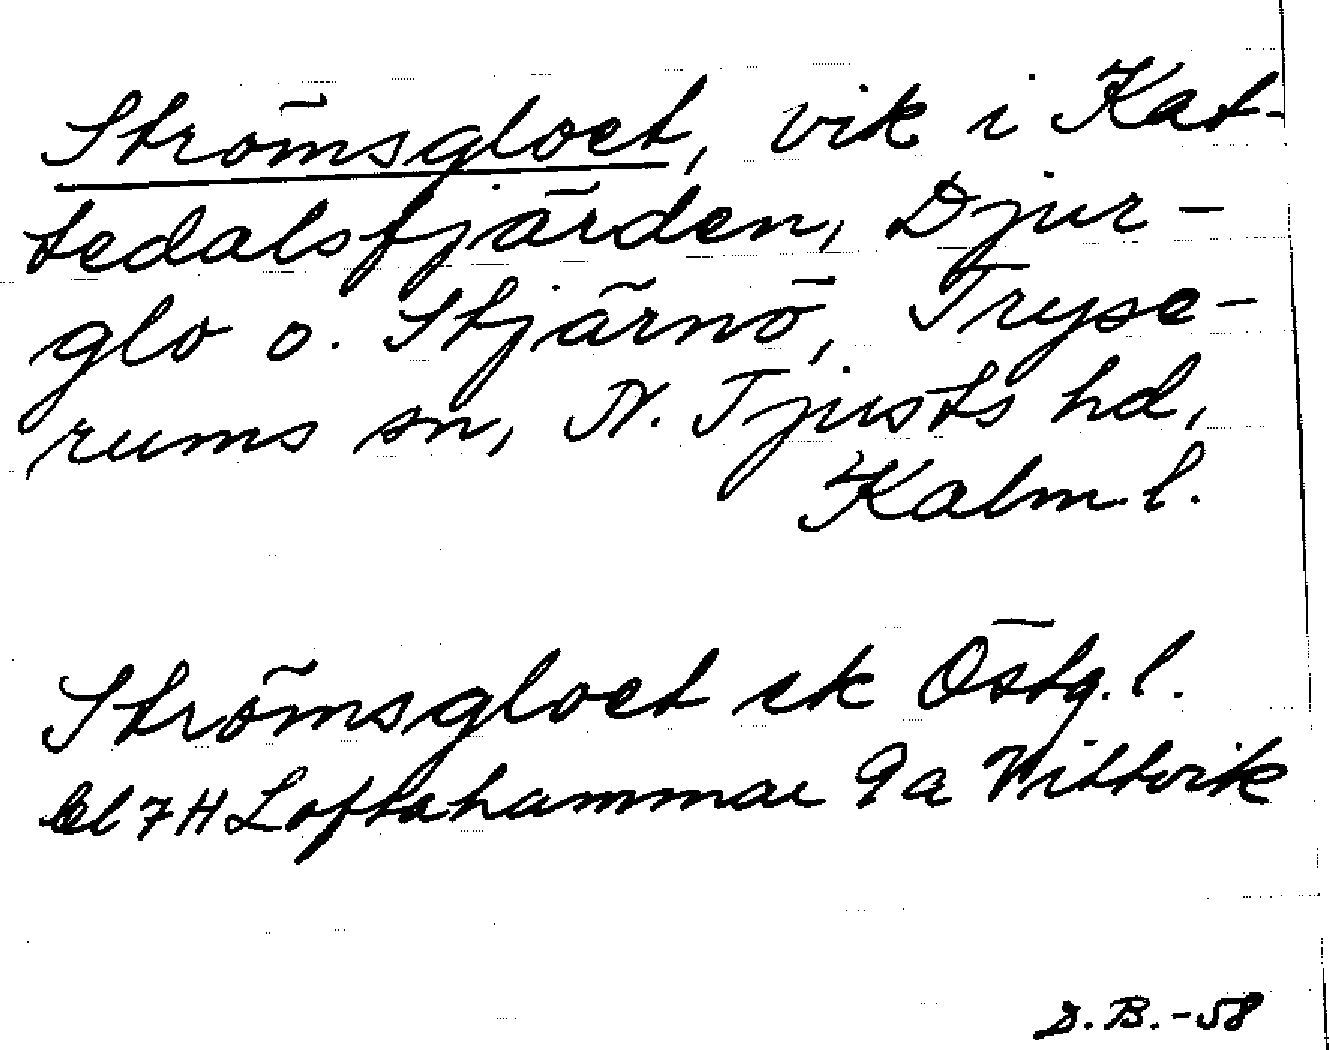 Strömsgloet, vik i Kat-
tedalsfjärden, Djur-
glo o. Stjärnö, Tryse-
rums sn, N. Tjusts hd,
Kalm. l.
Strömsgloet ek Östg. l.
bl 7H Loftahammar 9a Vittvik
D. B. -58